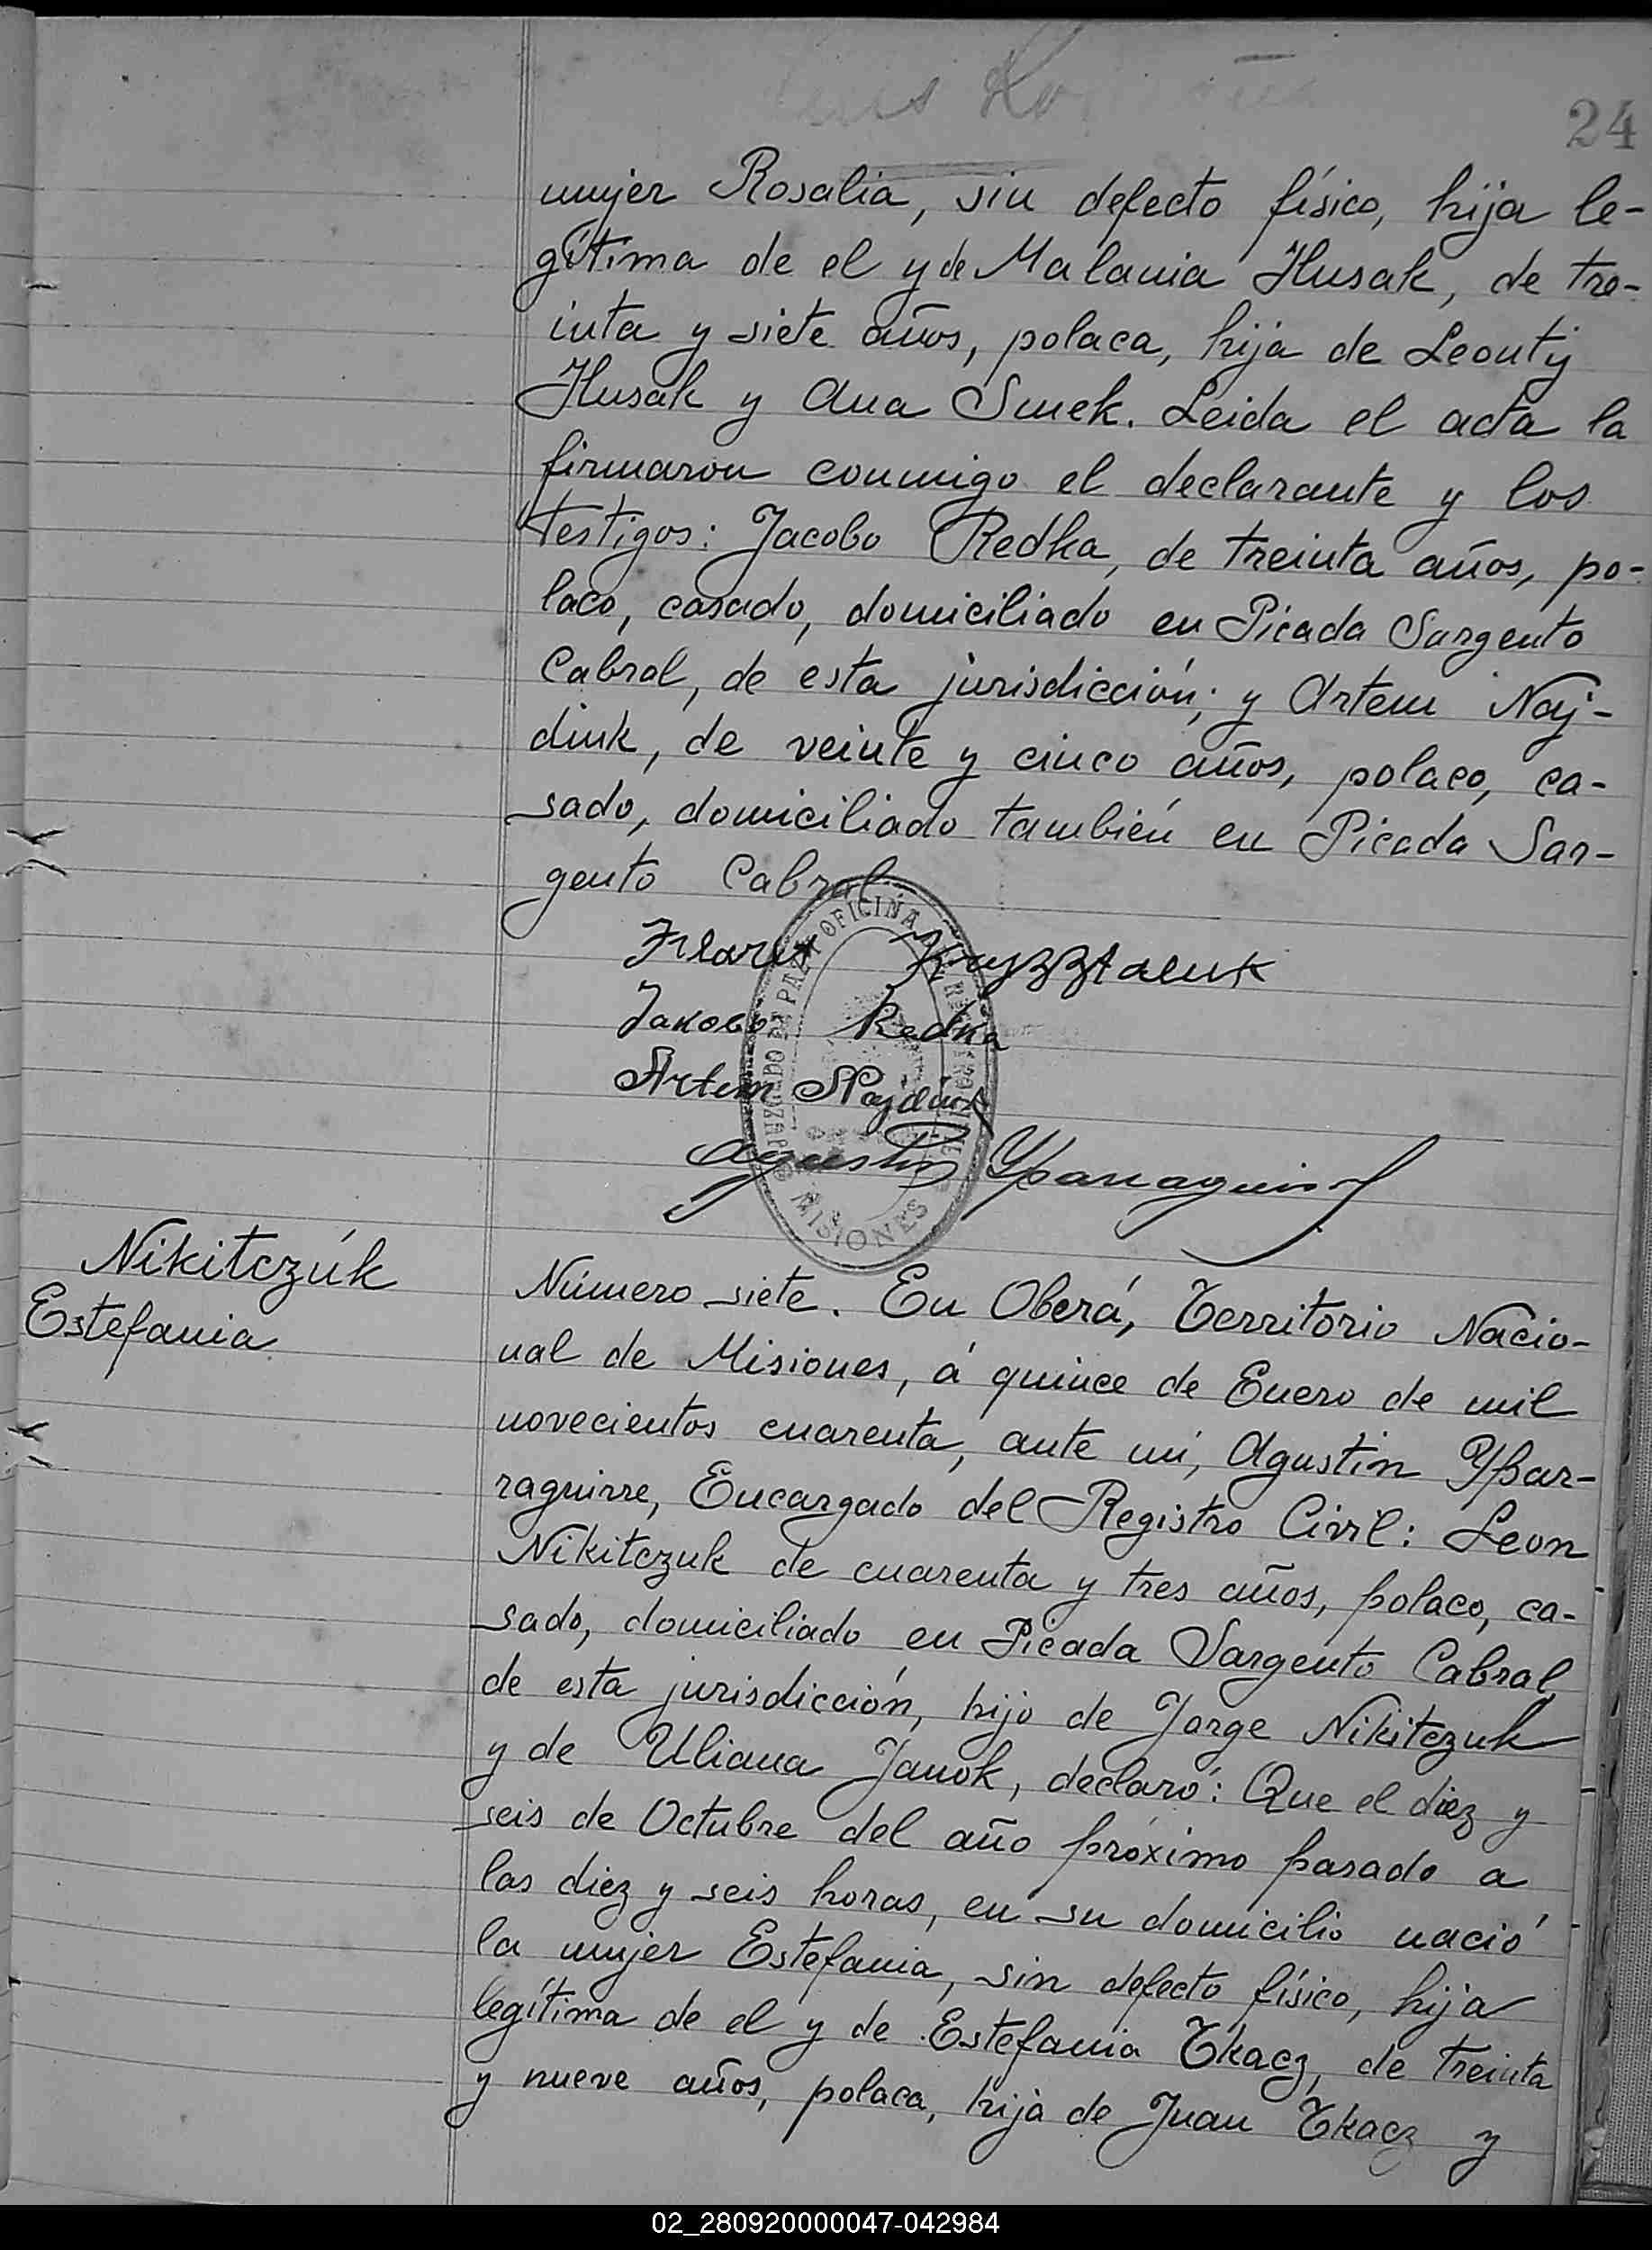 24
mujer Rosalia, sin defecto físico, hija le-
gítima de el y de Malania Husak, de tre-
inta y siete años, polaca, hija de Leonty
Husak y Ana Smek. Leida el acta la
firmaron conmigo el declarante y los
testigos: Jacobo Redka, de treinta años, po-
laco, casado, domiciliado en Picada Sargento
Cabral, de esta jurisdicción; y Artem Naj-
diuk, de veinte y cinco años, polaco, ca-
sado, domiciliado también en Picada Sar-
gento Cabral.
Krysztaluk
Jakobo Redka
Artem Najdiuk
Agustin
JUZGADO DE PAZ Y OFICINA
MISIONES
Nikitczúk
Estefania
Número siete. En Oberá, Territorio Nacio-
nal de Misiones, á quince de Enero de mil
novecientos cuarenta, ante mí, Agustin Ybar-
raguirre, Encargado del Registro Civil: Leon
Nikitczuk de cuarenta y tres años, polaco, ca-
sado, domiciliado en Picada Sargento Cabral,
de esta jurisdicción, hijo de Jorge Nikitczuk
y de Uliana Januk, declaró: Que el diez y
seis de Octubre del año próximo pasado a
las diez y seis horas, en su domicilio nació
la mujer Estefania, sin defecto físico, hija
legítima de el y de Estefania Tkacz, de treinta
y nueve años, polaca, hija de Juan Tkacz y
02_280920000047-042984